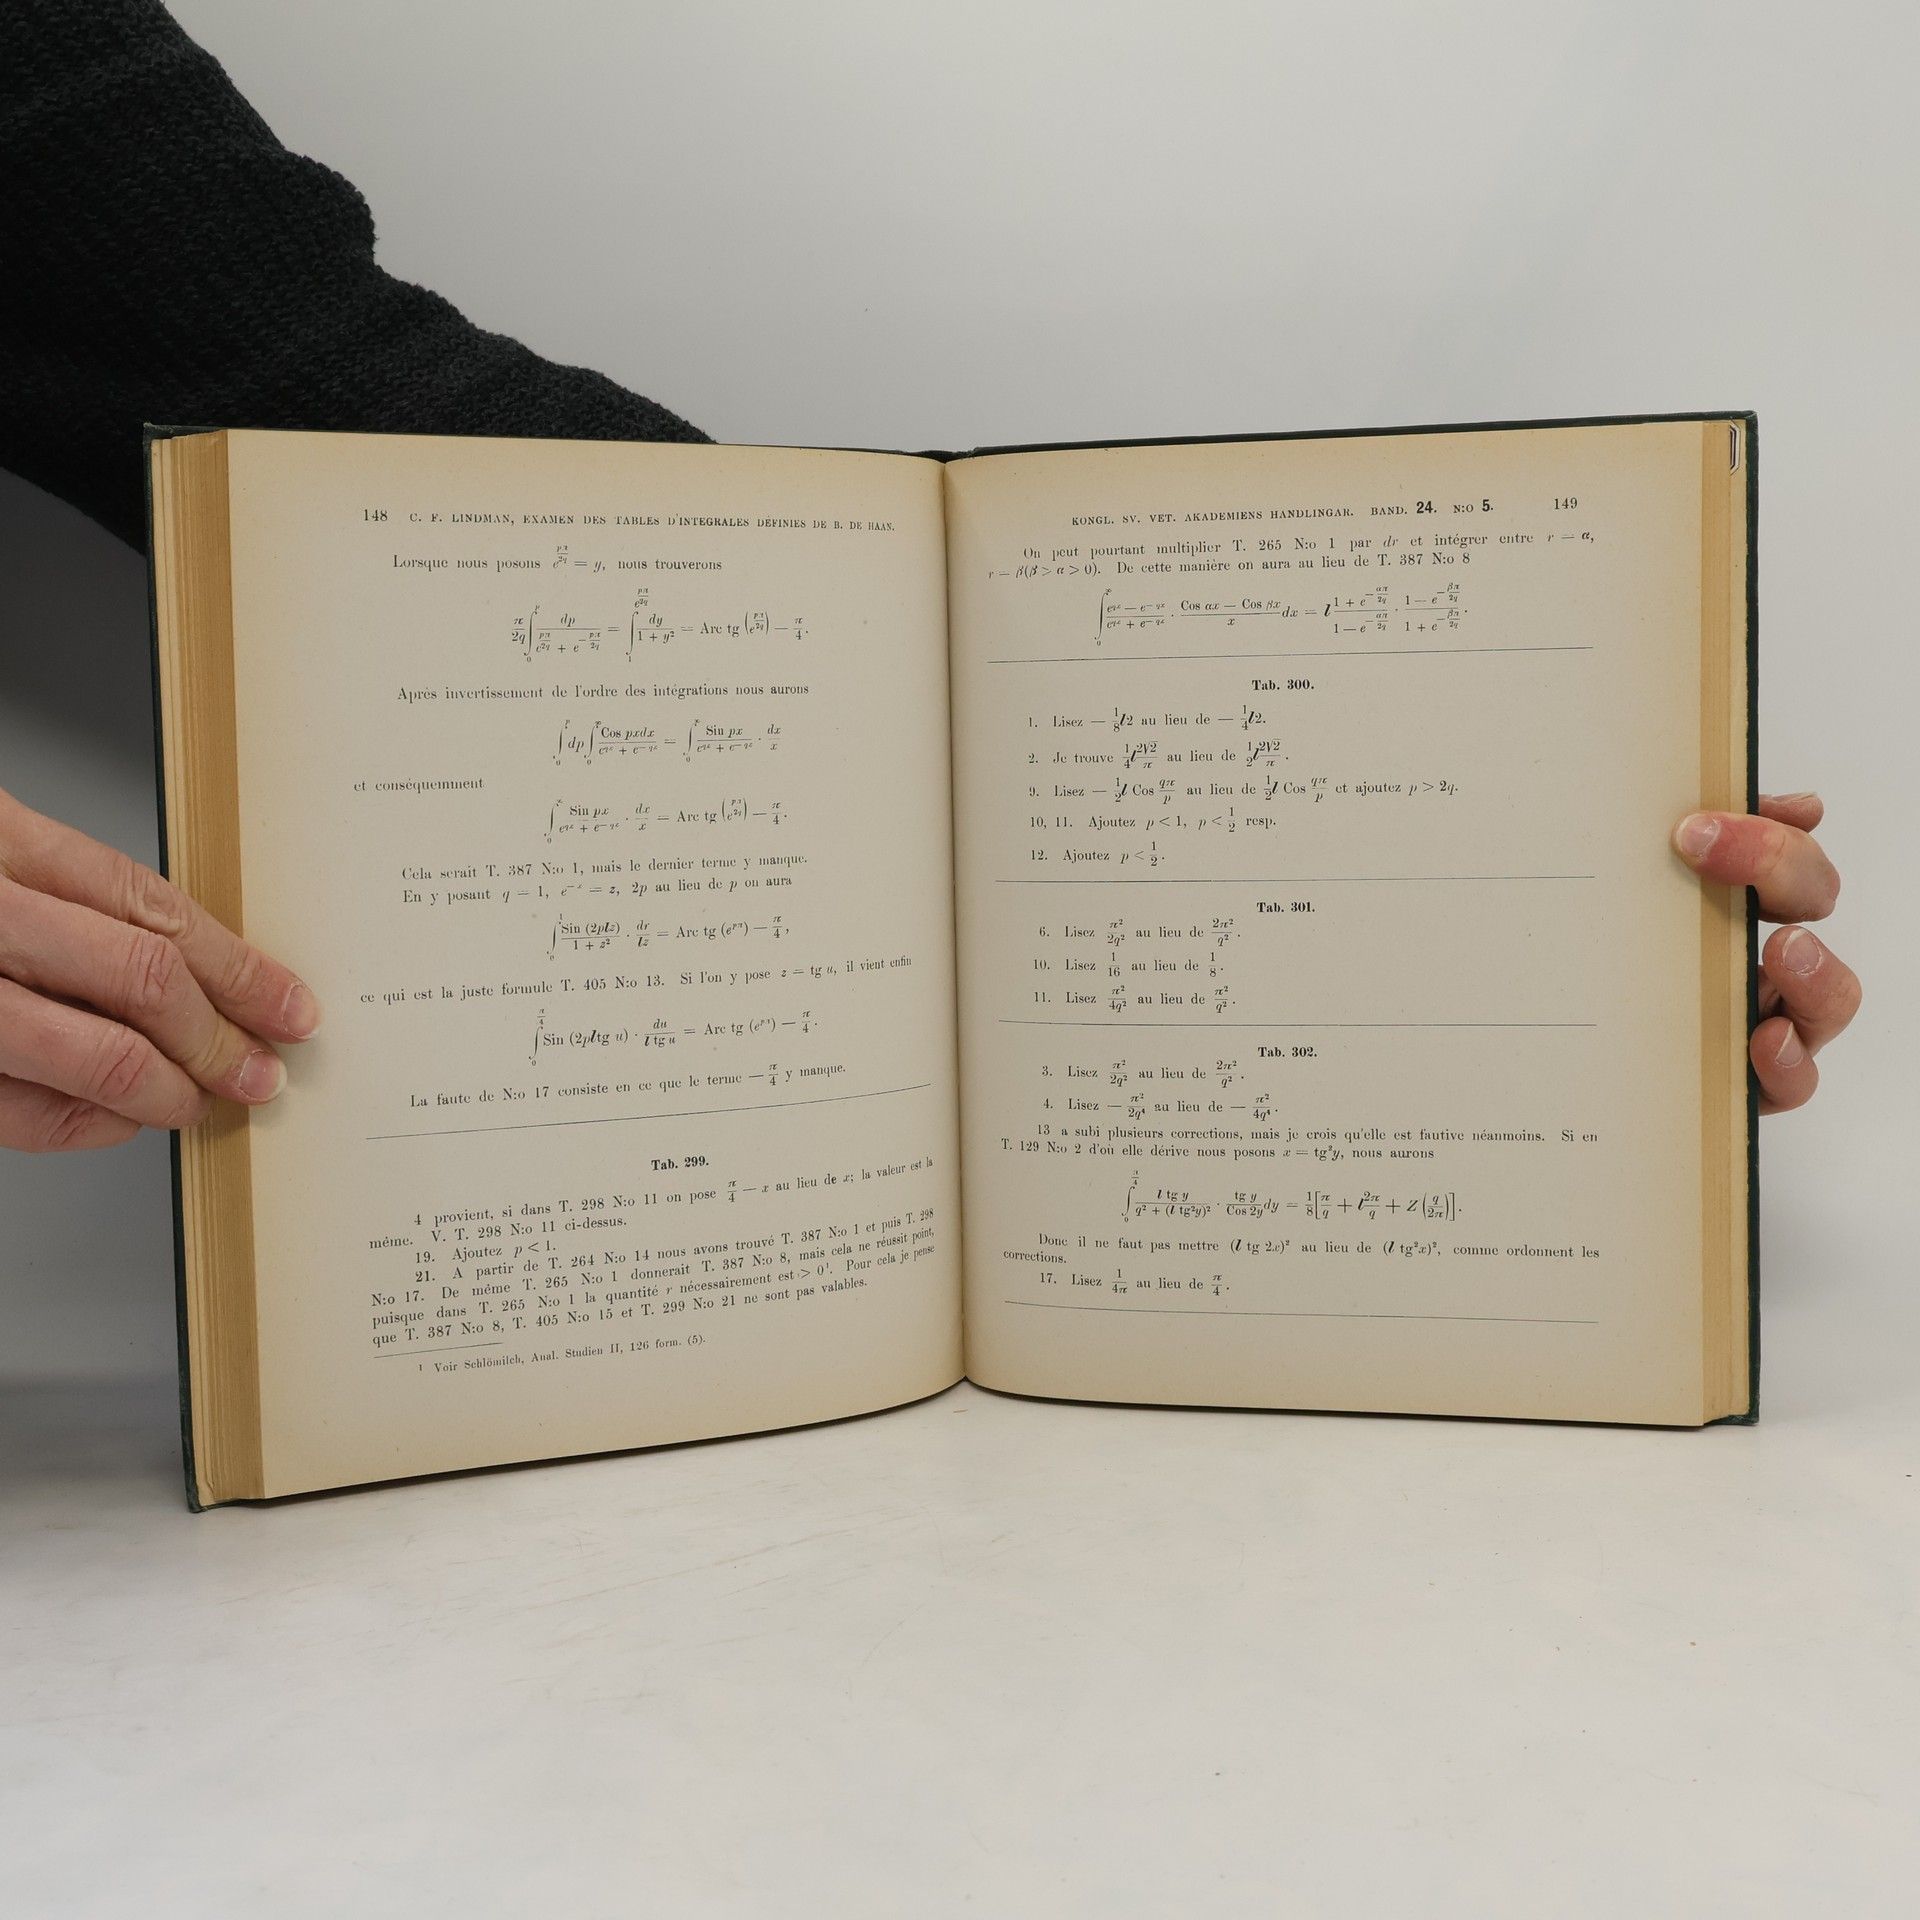 148 C. F. LINDMAN, EXAMEN DES TABLES D'INTEGRALES DÉFINIES DE B. DE HAAN.
Lorsque nous posons e^{pπ/2q} = y, nous trouverons
π/2q ∫_0^p dp/(e^{pπ/2q} + e^{−pπ/2q}) = ∫_1^{e^{pπ/2q}} dy/(1 + y²) = Arc tg (e^{pπ/2q}) − π/4.
Après invertissement de l'ordre des intégrations nous aurons
∫_0^p dp ∫_0^∞ Cos pxdx/(e^{qx} + e^{−qx}) = ∫_0^∞ Sin px/(e^{qx} + e^{−qx}) · dx/x
et conséquemment
∫_0^∞ Sin px/(e^{qx} + e^{−qx}) · dx/x = Arc tg (e^{pπ/2q}) − π/4.
Cela serait T. 387 N:o 1, mais le dernier terme y manque.
En y posant q = 1, e^{−x} = z, 2p au lieu de p on aura
∫_0^1 Sin (2plz)/(1 + z²) · dz/lz = Arc tg (e^{pπ}) − π/4,
ce qui est la juste formule T. 405 N:o 13. Si l'on y pose z = tg u, il vient enfin
∫_0^{π/4} Sin (2pltg u) · du/l tg u = Arc tg (e^{pπ}) − π/4.
La faute de N:o 17 consiste en ce que le terme − π/4 y manque.
Tab. 299.
4 provient, si dans T. 298 N:o 11 on pose π/4 − x au lieu de x; la valeur est la
même. V. T. 298 N:o 11 ci-dessus.
19. Ajoutez p < 1.
21. A partir de T. 264 N:o 14 nous avons trouvé T. 387 N:o 1 et puis T. 298
N:o 17. De même T. 265 N:o 1 donnerait T. 387 N:o 8, mais cela ne réussit point,
puisque dans T. 265 N:o 1 la quantité r nécessairement est > 0¹. Pour cela je pense
que T. 387 N:o 8, T. 405 N:o 15 et T. 299 N:o 21 ne sont pas valables.
¹ Voir Schlömilch, Anal. Studien II, 126 form. (5).
KONGL. SV. VET. AKADEMIENS HANDLINGAR. BAND. 24. N:O 5. 149
On peut pourtant multiplier T. 265 N:o 1 par dr et intégrer entre r = α,
r = β(β > α > 0). De cette manière on aura au lieu de T. 387 N:o 8
∫_0^∞ (e^{qx} − e^{−qx})/(e^{qx} + e^{−qx}) · (Cos αx − Cos βx)/x dx = l (1 + e^{−απ/2q})/(1 − e^{−απ/2q}) · (1 − e^{−βπ/2q})/(1 + e^{−βπ/2q}).
Tab. 300.
1. Lisez − 1/8 l2 au lieu de − 1/4 l2.
2. Je trouve 1/4 l 2√2/π au lieu de 1/2 l 2√2/π.
9. Lisez − 1/2 l Cos qπ/p au lieu de 1/2 l Cos qπ/p et ajoutez p > 2q.
10, 11. Ajoutez p < 1, p < 1/2 resp.
12. Ajoutez p < 1/2.
Tab. 301.
6. Lisez π²/2q² au lieu de 2π²/q².
10. Lisez 1/16 au lieu de 1/8.
11. Lisez π²/4q² au lieu de π²/q².
Tab. 302.
3. Lisez π²/2q² au lieu de 2π²/q².
4. Lisez − π²/2q⁴ au lieu de − π²/4q⁴.
13 a subi plusieurs corrections, mais je crois qu'elle est fautive néanmoins. Si en
T. 129 N:o 2 d'où elle dérive nous posons x = tg²y, nous aurons
∫_0^{π/4} l tg y/(q² + (l tg²y)²) · tg y/Cos 2y dy = 1/8 [π/q + l 2π/q + Z (q/2π)].
Donc il ne faut pas mettre (l tg 2x)² au lieu de (l tg²x)², comme ordonnent les
corrections.
17. Lisez 1/4π au lieu de π/4.